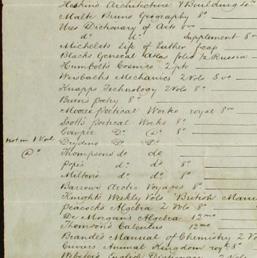 Hoskins Architecture & Building
Malte Bruns Geography 8°
Ures Dictionary of Arts 8vo
d° Supplement 8°
Michelets Life of Luther fcap
Blacks General Atlas folio ½ Russia
Humbolts Cosmos 2 pts
Weisbachs Mechanics 2 Vols 8vo
Knapps Technology 2 Vols 8°
Burns Poetry 8°
Moores Poetical Works royal 8vo
Scotts Poetical Works 8°
Cowper D° D° 8°
Dryden D° D°
Thompsons d° d°
Popes d° d° 8°
Miltons d° d° 8°
Barrows Arctic Voyages 8°
Knights Weekly Vols British
Peacocks Algebra 2 Vols 8°
De Morgans Algebra 12mo
Thomsons Calculus 12mo
Brandes Manual of Chemistry 2
Cuviers Animal Kingdom roy 8°
Websters English Dictionary 2